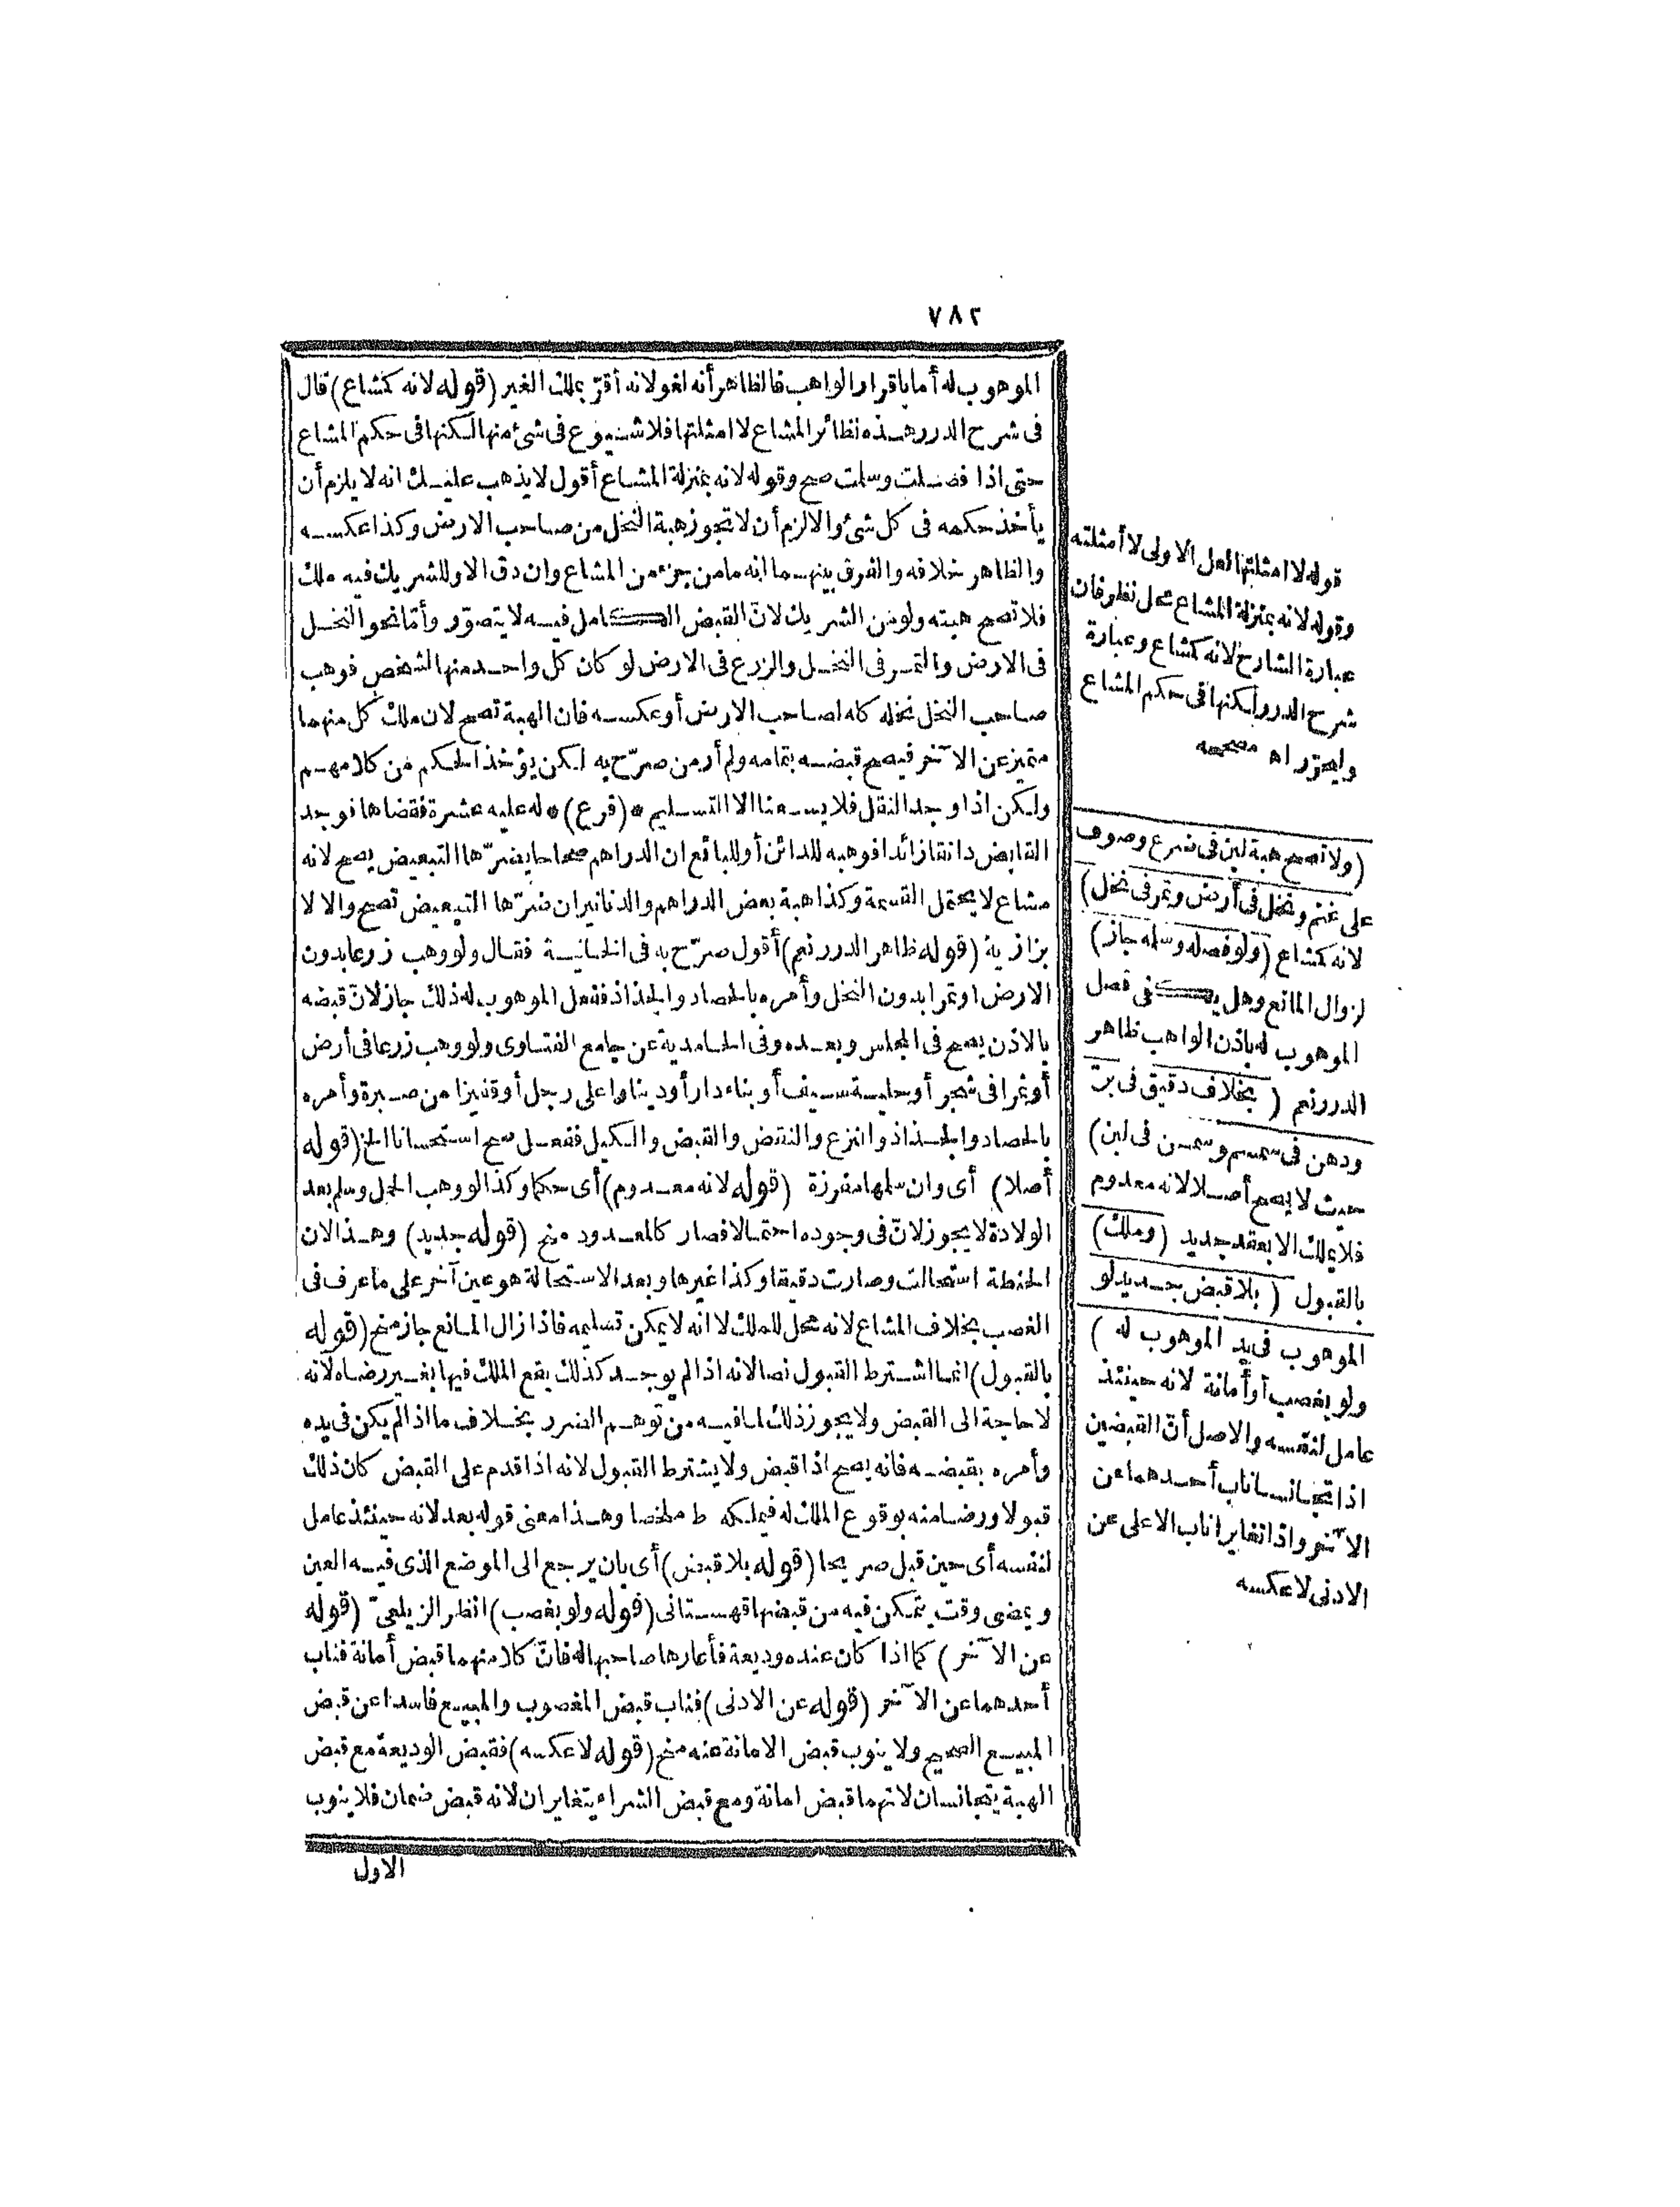 ٧٨٢
الموهوب له أما باقرار الواهب فالظاهر أنه لغو لانه أقرّ بملك الغير (قوله لانه كمشاع) قال
فى شرح الدرر هذه نظائر المشاع لا امثلتها فلا شيوع فى شئ منها لكنها فى حكم المشاع
حتى اذا فصلت وسلمت صح وقوله لانه بمنزلة المشاع أقول لا يذهب عليك انه لا يلزم أن
يأخذ حكمه فى كل شئ والا لزم أن لا تجوز هبة النخل من صاحب الارض وكذا عكسه
والظاهر خلافه والفرق بينهما انه ما من جزء من المشاع وان دق الا وللشريك فيه ملك
فلا تصح هبته ولو من الشريك لانّ القبض الكامل فيه لا يتصوّر وأمّا نحو النخل
فى الارض والتمر فى النخل والزرع فى الارض لو كان كل واحد منها لشخص فوهب
صاحب النخل نخله كله لصاحب الارض أو عكسه فان الهبة تصح لان ملك كل منهما
متميز عن الآخر فيصح قبضه بتمامه ولم أر من صرّح به لكن يؤخذ الحكم من كلامهم
ولكن اذا وجد النقل فلا يسعنا الا التسليم * (فرع) * له عليه عشرة فقضاها فوجد
القابض دانقا زائدا فوهبه للدائن أو للبائع ان الدراهم صحاحا يضرّها التبعيض يصح لانه
مشاع لا يحتمل القسمة وكذا هبة بعض الدراهم والدنانير ان ضرّها التبعيض تصح والا لا
بزازية (قوله ظاهر الدرر نعم) أقول صرّح به فى الخانية فقال ولو وهب زرعا بدون
الارض او تمرا بدون النخل وأمره بالحصاد والجذاذ ففعل الموهوب له ذلك جاز لانّ قبضه
بالاذن يصح فى المجلس وبعده وفى الحامدية عن جامع الفتاوى ولو وهب زرعا فى أرض
أو ثمرا فى شجر أو حلية سيف أو بناء دار أو دينارا على رجل أو قفيزا من صبرة وأمره
بالحصاد والجذاذ والنزع والنقض والقبض والكيل ففعل صح استحسانا الخ (قوله
أصلا) أى وان سلمها مفرزة (قوله لانه معدوم) أى حكما وكذا لو وهب الحمل وسلم بعد
الولادة لا يجوز لانّ فى وجوده احتمالا فصار كالمعدوم منح (قوله جديد) وهذا لان
الحنطة استحالت وصارت دقيقا وكذا غيرها وبعد الاستحالة هو عين آخر على ما عرف فى
الغصب بخلاف المشاع لانه محل للملك لا انه لا يمكن تسليمه فاذا زال المانع جاز منح (قوله
بالقبول) انما اشترط القبول نصا لانه اذا لم يوجد كذلك يقع الملك فيها بغير رضاه لانه
لا حاجة الى القبض ولا يجوز ذلك لما فيه من توهم الضرر بخلاف ما اذا لم يكن فى يده
وأمره بقبضه فانه يصح اذا قبض ولا يشترط القبول لانه اذا قدم على القبض كان ذلك
قبولا ورضا منه بوقوع الملك له فيملكه ط ملخصا وهذا معنى قوله بعد لانه حينئذ عامل
لنفسه أى حين قبل صريحا (قوله بلا قبض) أى بان يرجع الى الموضع الذى فيه العين
ويمضى وقت يتمكن فيه من قبضها قهستانى (قوله ولو بغصب) انظر الزيلعىّ (قوله
عن الآخر) كما اذا كان عنده وديعة فأعارها صاحبها له فانّ كلا منهما قبض أمانة فناب
أحدهما عن الآخر (قوله عن الادنى) فناب قبض المغصوب والمبيع فاسدا عن قبض
المبيع الصحيح ولا ينوب قبض الامانة عنه منح (قوله لا عكسه) فقبض الوديعة مع قبض
الهبة يتجانسان لانهما قبض امانة ومع قبض الشراء يتغايران لانه قبض ضمان فلا ينوب
الاول
قوله لا امثلتها لعل الاولى لا أمثلته
وقوله لانه بمنزلة المشاع محل نظر فان
عبارة الشارح لانه كمشاع وعبارة
شرح الدرر لكنها فى حكم المشاع
وليحرّر اه مصححه
(ولا تصح هبة لبن فى ضرع وصوف
على غنم ونخل فى أرض وتمر فى نخل)
لانه كمشاع (ولو فصله وسلمه جاز)
لزوال المانع وهل يكفى فصل
الموهوب له باذن الواهب ظاهر
الدرر نعم (بخلاف دقيق فى برّ
ودهن فى سمسم وسمن فى لبن)
حيث لا يصح أصلا لانه معدوم
فلا يملك الا بعقد جديد (وملك)
بالقبول (بلا قبض جديد لو
الموهوب فى يد الموهوب له)
ولو بغصب أو أمانة لانه حينئذ
عامل لنفسه والاصل أنّ القبضين
اذا تجانسا ناب أحدهما عن
الآخر واذا تغايرا ناب الاعلى عن
الادنى لا عكسه